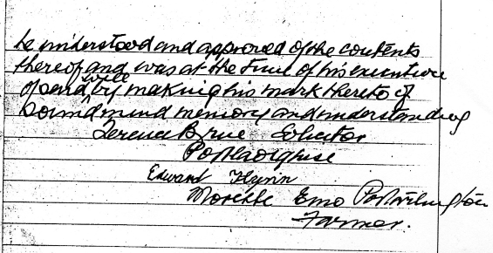 he understood and approved of the contents
thereof and was at the time of his execution
of said will by making his mark thereto of
sound mind memory and understanding
Terence Solicitor
Portlaoighise
Edward Flynn
Emo Portarlington
Farmer.